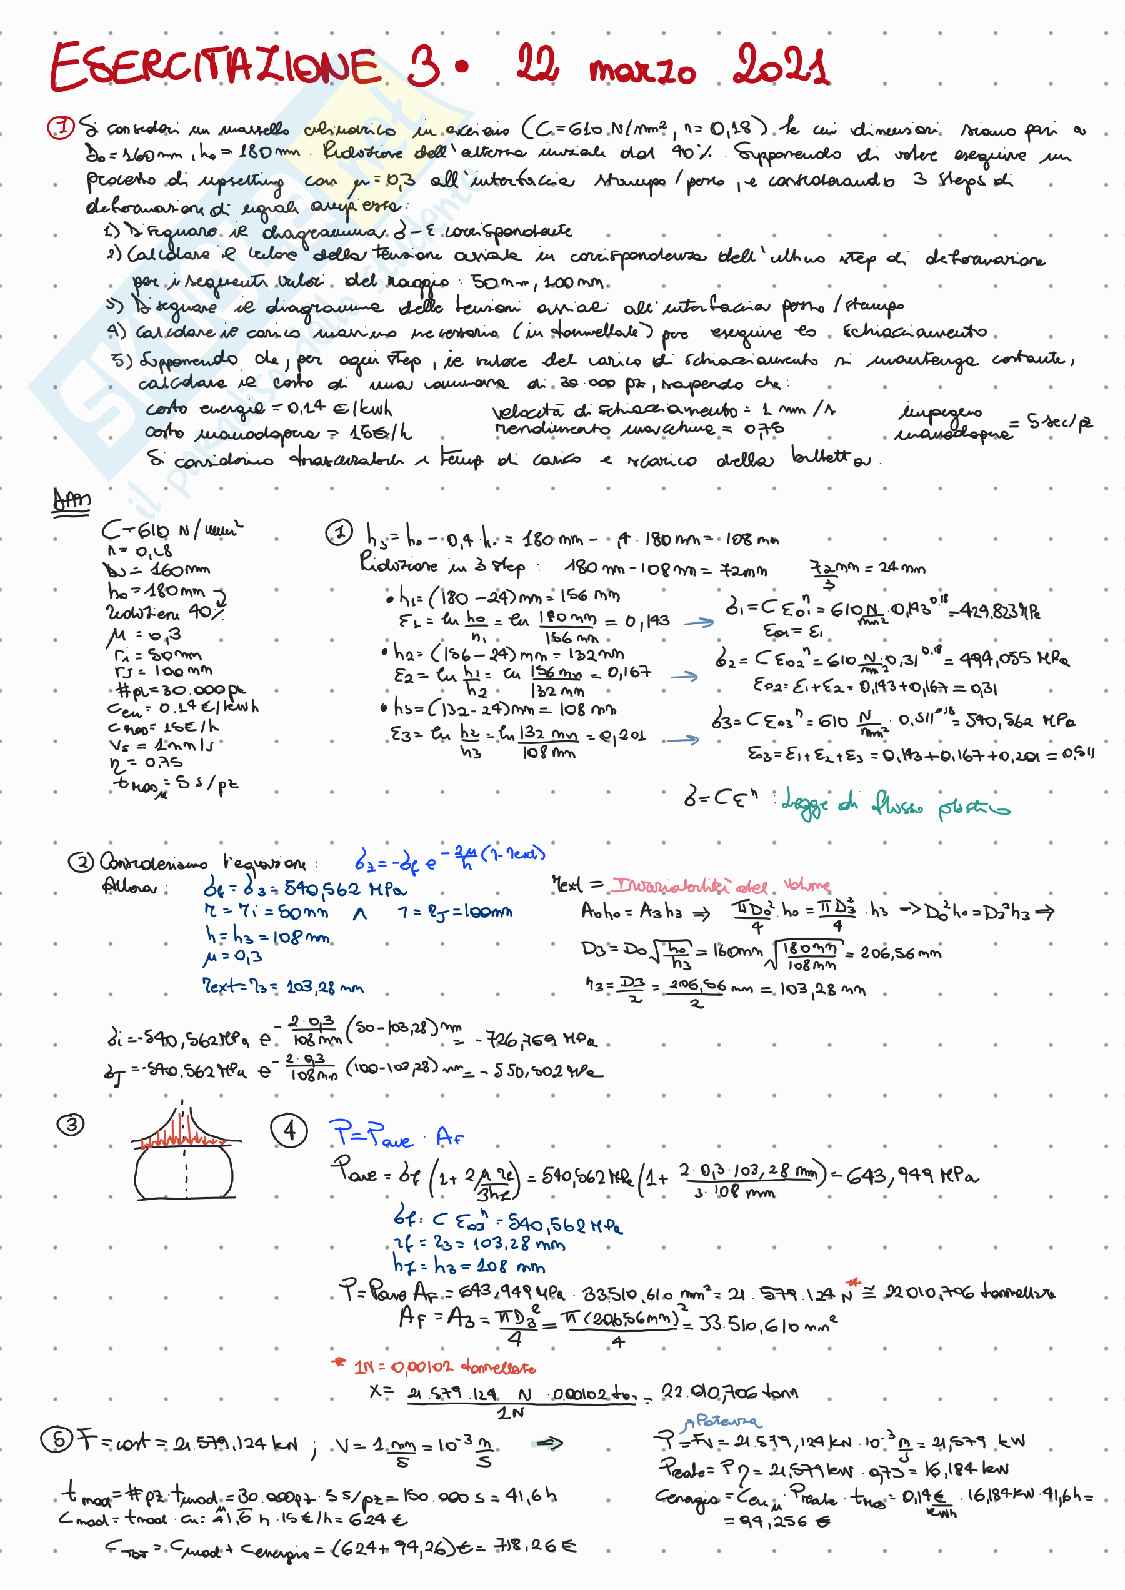 ESERCITAZIONE 3 • 22 marzo 2021
① Si consideri un massello cilindrico in acciaio (C=610 N/mm², n=0,18) le cui dimensioni siano pari a
D₀=160mm, h₀=180mm. Riduzione dell'altezza iniziale del 40%. Supponendo di voler eseguire un
processo di upsetting con μ=0,3 all'interfaccia stampo/pezzo, e considerando 3 steps di
deformazione di uguale ampiezza:
1) Disegnare il diagramma σ-ε corrispondente
2) Calcolare il valore della tensione assiale in corrispondenza dell'ultimo step di deformazione
per i seguenti valori del raggio: 50mm, 100mm.
3) Disegnare il diagramma delle tensioni assiali all'interfaccia pezzo/stampo
4) Calcolare il carico massimo necessario (in tonnellate) per eseguire lo schiacciamento.
5) Supponendo che, per ogni step, il valore del carico di schiacciamento si mantenga costante,
calcolare il costo di una commessa di 30.000 pz, sapendo che:
costo energia = 0,14 €/kWh velocità di schiacciamento = 1 mm/s impegno
costo manodopera = 15€/h rendimento macchina = 0,75 manodopera = 5 sec/pz
Si considerino trascurabili i tempi di carico e scarico della billetta.
C=610 N/mm²
n=0,18
D₀=160mm
h₀=180mm
riduzione 40%
μ=0,3
rᵢ=50mm
rⱼ=100mm
#pz=30.000pz
Cen=0.14€/kWh
Cmod=15€/h
Vs=1mm/s
η=0.75
tmod,u=5 s/pz
① h₃=h₀-0,4·h₀=180mm-,4·180mm=108mm
Riduzione in 3 step: 180mm-108mm=72mm 72/3 mm=24mm
• h₁=(180-24)mm=156mm
ε₁=ln h₀/h₁=ln 180mm/156mm=0,143 → σ₁=Cε₀₁ⁿ=610 N/mm²·0,143^0,18=429.823MPa
ε₀₁=ε₁
• h₂=(156-24)mm=132mm
ε₂=ln h₁/h₂=ln 156mm/132mm=0,167 → σ₂=Cε₀₂ⁿ=610 N/mm²·0,31^0,18=494,055 MPa
ε₀₂=ε₁+ε₂=0,143+0,167=0,31
• h₃=(132-24)mm=108mm
ε₃=ln h₂/h₃=ln 132mm/108mm=0,201 → σ₃=Cε₀₃ⁿ=610 N/mm²·0.511^0,18=540,562 MPa
ε₀₃=ε₁+ε₂+ε₃=0,143+0,167+0,201=0,511
σ=Cεⁿ: Legge di flusso plastico
② Consideriamo l'equazione: σz=-σf e^(-2μ/h (r-rext))
Allora: σf=σ₃=540,562 MPa
r=rᵢ=50mm ∧ r=rⱼ=100mm
h=h₃=108mm
μ=0,3
rext=r₃=103,28mm
rext = Invariabilità del volume
A₀h₀=A₃h₃ ⇒ πD₀²/4 h₀=πD₃²/4·h₃ → D₀²h₀=D₃²h₃ ⇒
D₃=D₀√(h₀/h₃)=160mm√(180mm/108mm)=206,56mm
r₃=D₃/2=206,56/2 mm=103,28mm
σᵢ=-540,562MPa e^(-2·0,3/108mm (50-103,28)mm)=-726,769 MPa
σⱼ=-540,562MPa e^(-2·0,3/108mm (100-103,28)mm)=-550,502MPa
③
④ P=Pave·AF
Pave=σf(1+2μrf/3hf)=540,562MPa(1+2·0,3·103,28mm/3·108mm)=643,949MPa
σf=Cε₀₃ⁿ=540,562MPa
rf=r₃=103,28mm
hf=h₃=108mm
P=Pave AF=643,949MPa·33.510,610mm²=21.579.124N*≅22010,706 tonnellate
AF=A₃=πD₃²/4=π(206,56mm)²/4=33.510,610mm²
* 1N=0,00102 tonnellate
x=21.579.124 N·0.00102 ton/1N=22.010,706 tonn
⑤ F=cost=21.579,124kN; V=1 mm/s=10⁻³ m/s ⇒
Potenza
P=Fv=21.579,124kN·10⁻³ m/s=21,579 kW
Preale=Pη=21,579kW·0,75=16,184kW
Cenergia=Cen,u·Preale·tmod=0,14€/kWh·16,184kW·41,6h=
=94,256€
tmod=#pz·tmod,u=30.000pz·5s/pz=150.000s=41,6h
Cmod=tmod·cu=41,6h·15€/h=624€
CTOT=Cmod+Cenergia=(624+94,26)€=718,26€